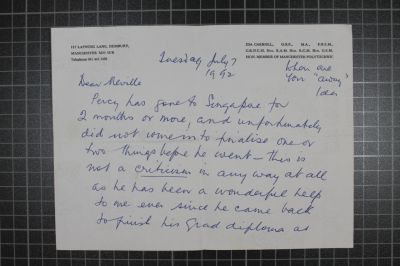 117 LAPWING LANE, DIDSBURY,
MANCHESTER M20 0UR
Telephone 061 445
IDA CARROLL, O.B.E., M.A., F.R.N.C.M.
HON. MEMBER OF MANCHESTER POLYTECHNIC
Tuesday July 7
1992
When are
Your "away"
Ida
Dear Neville
Percy has gone to Singapore for
2 months or more, and unfortunately
did not come in to finalise one or
two things before he went – this is
not a criticism in any way at all
as he has been a wonderful help
to me ever since he came back
to finish his Grad diploma as